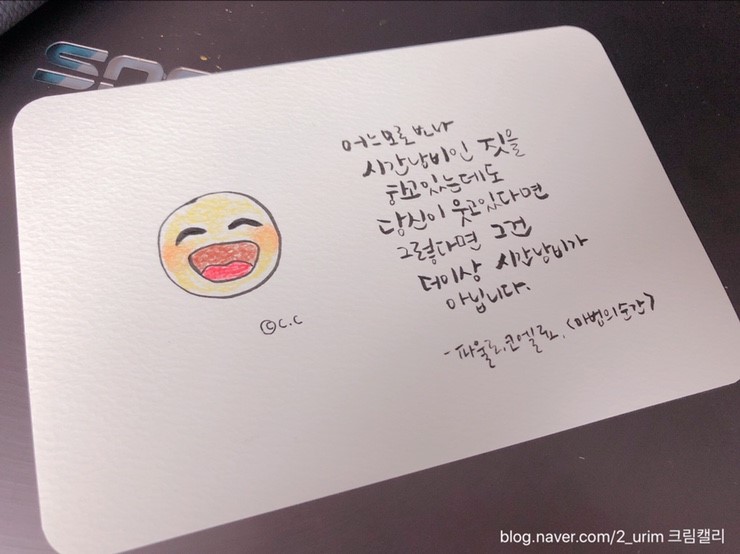 어느모로보나
시간낭비인 짓을
하고있는데도
당신이 웃고있다면
그렇다면 그건
더이상 시간낭비가
아닙니다.
-파울로.코엘료, <마법의순간>
©c.c
blog.naver.com/2_urim 크림캘리